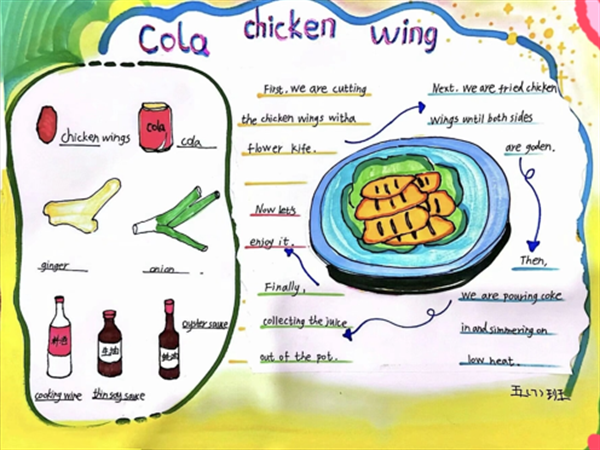 Cola chicken wing
chicken wings
cola
cola
ginger
onion
oyster sauce
cooking wine
thin soy sauce
First. we are cutting
the chicken wings witha
flower kife.
Next. we are fried chicken
wings until both sides
are goden.
Then,
we are pouring coke
in and simmering on
low heat.
Finally,
collecting the juice
out of the pot.
Now let's
enjoy it.